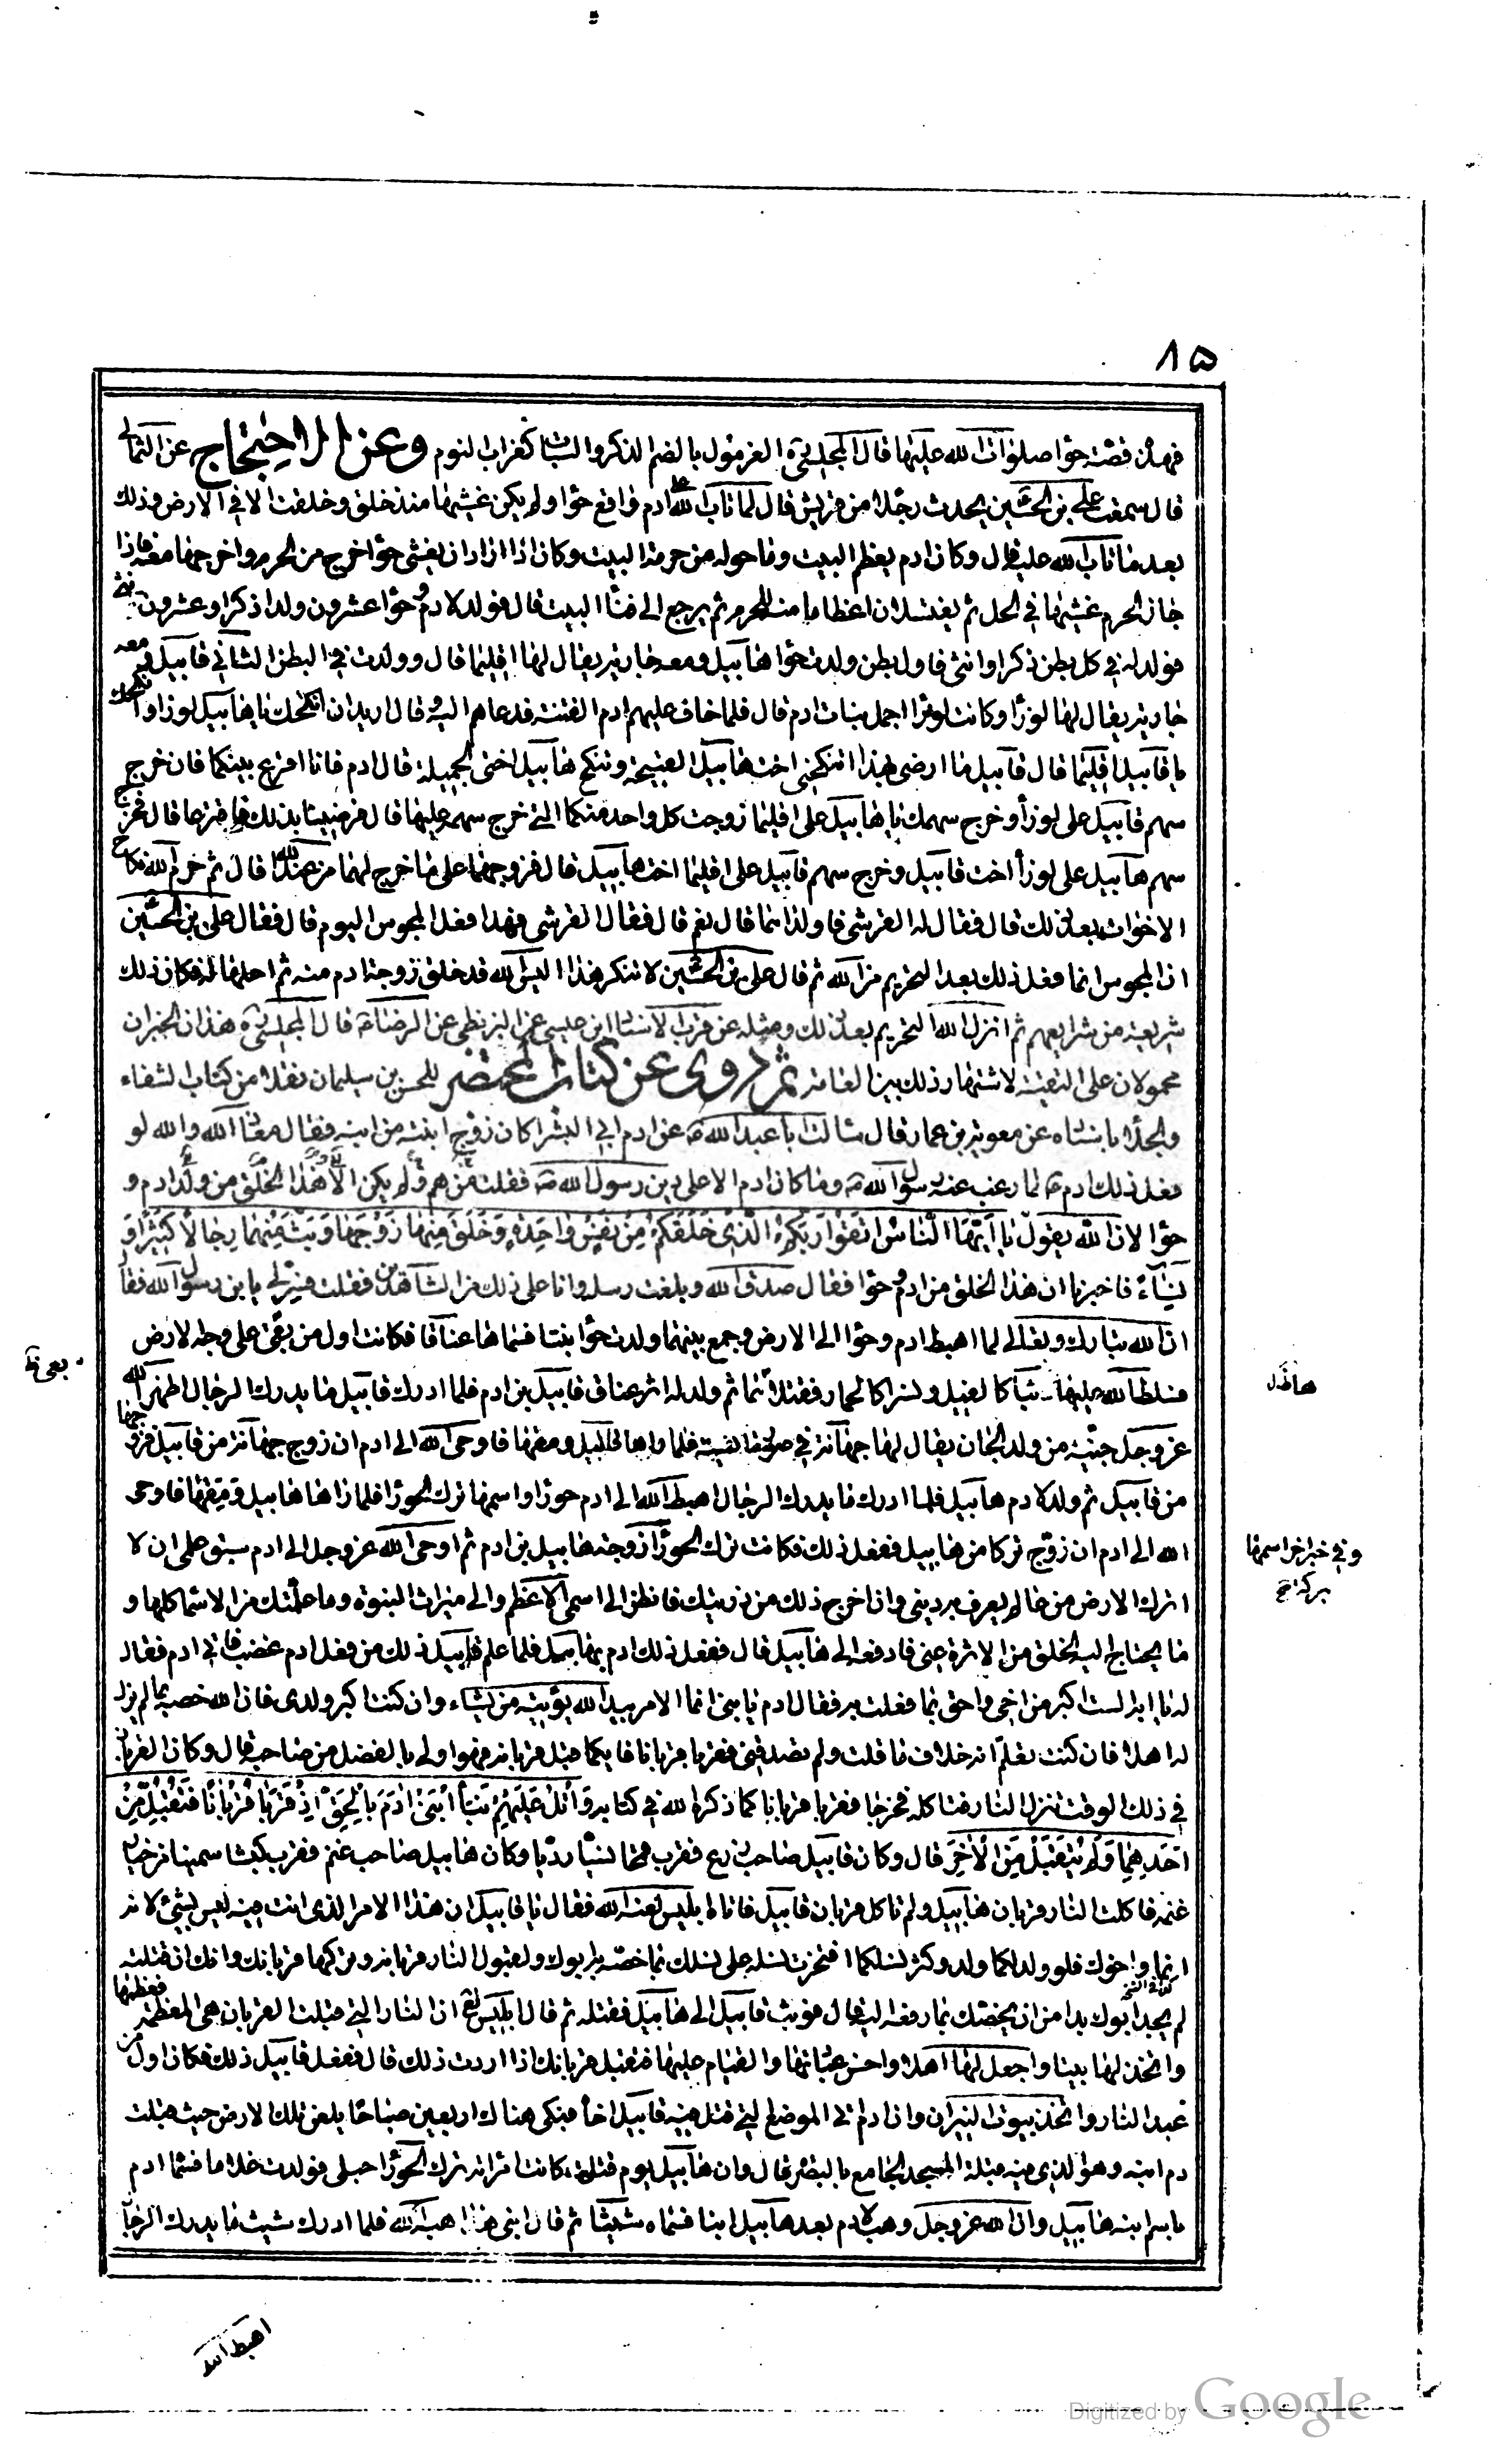 ٨٥
فهذه قصّة حوّا صلوات الله عليها قال المجلسيّ ره الغرمول بالضم الذكر والسّبات كغراب النوم وعن الاحتجاج عن الثمالى
قال سمعت علىّ بن الحسين يحدث رجلا من قريش قال لما تاب الله على ادم واقع حوّا ولم يكن غشيها منذ خلق وخلقت الا فى الارض وذلك
بعد ما تاب الله عليه قال وكان ادم يعظم البيت وما حوله من حرمة البيت وكان اذا اراد ان يغشى حوّا خرج من الحرم واخرجها معه فاذا
جاز الحرم غشيها فى الحل ثم يغتسلان اعظاما منه للحرم ثم يرجع الى فناء البيت قال فولد لادم وحوّا عشرون ولدا ذكرا وعشرون انثى
فولد له فى كل بطن ذكرا وانثى فاول بطن ولدت حوّا هابيل ومعه جارية يقال لها اقليما قال وولدت فى البطن الثانى قابيل ومعه
جارية يقال لها لوزا وكانت لوزا اجمل بنات ادم قال فلما خاف عليهم ادم الفتنة فدعاهم اليه وقال اريد ان انكحك يا هابيل لوزا وانكحك
يا قابيل اقليما قال قابيل ما ارضى بهذا اتنكحنى اخت هابيل القبيحة وتنكح هابيل اختى الجميلة قال ادم فانا اقرع بينكما فان خرج
سهم قابيل على لوزا وخرج سهمك يا هابيل على اقليما زوجت كل واحد منكما التى خرج سهمه عليها قال فرضيا بذلك فاقترعا قال فخرج
سهم هابيل على لوزا اخت قابيل وخرج سهم قابيل على اقليما اخت هابيل قال فزوجهما على ما خرج لهما من عند الله قال ثم حرم الله نكاح
الاخوات بعد ذلك قال فقال له القرشى فاولداهما قال نعم قال فقال القرشى فهذا فعل المجوس اليوم قال فقال على بن الحسين
ان المجوس انما فعل ذلك بعد التحريم من الله ثم قال على بن الحسين لا تنكر هذا اليس الله قد خلق زوجة ادم منه ثم احلها له فكان ذلك
شريعة من شرايعهم ثم انزل الله التحريم بعد ذلك ومثله عن قرب الاسناد ابن عيسى عن البزنطى عن الرضا قال المجلسىّ ره هذان الخبران
محمولان على التقية لاشتهار ذلك بين العامة ثم روى عن كتاب المحتضر للحسن بن سليمان نقلا من كتاب الشفاء
والجلاء باسناده عن معوية بن عمار قال سالت ابا عبد الله عن ادم ابى البشر اكان زوج ابنته من ابنه فقال معاذ الله والله لو
فعل ذلك ادم لما رغب عنه رسول الله وما كان ادم الا على دين رسول الله فقلت من هم ولم يكن الا هذا الخلق من ولد ادم و
حوّا لان الله يقول يا ايّها النّاس اتقوا ربكم الّذى خلقكم من نفس واحدة وخلق منها زوجها وبثّ منهما رجالا كثيرا و
نساء فاخبرنا ان هذا الخلق من ادم وحوّا فقال صدق الله وبلغت رسله وانا على ذلك من الشاهدين فقلت ففسّر لى يا ابن رسول الله فقال
ان الله تبارك وتعالى لما اهبط ادم وحوّا الى الارض وجمع بينهما ولدت حوّا بنتا فسماها عناقا فكانت اول من بغى على وجه الارض
فسلط الله عليها ذئبا كالفيل ونسرا كالحمار فقتلاها ثم ولد له اثر عناق قابيل بن ادم فلما ادرك قابيل ما يدرك الرجال اظهر الله
عز وجل جنّية من ولد الجان يقال لها جهانة فى صورة انسية فلما راها قابيل ومقها فاوحى الله الى ادم ان زوج جهانة من قابيل فزوجها
من قابيل ثم ولد لادم هابيل فلما ادرك ما يدرك الرجال اهبط الله الى ادم حوراء واسمها ترك الحوراء فلما راها هابيل ومقها فاوحى
الله الى ادم ان زوّج تركا من هابيل ففعل ذلك فكانت ترك الحوراء زوجة هابيل بن ادم ثم اوحى الله عز وجل الى ادم سبق علمى ان لا
اترك الارض من عالم يعرف به دينى وان اخرج ذلك من ذريتك فانظر الى اسمى الاعظم والى ميراث النبوة وما علّمتك من الاسماء كلها و
ما يحتاج اليه الخلق من الاثرة عنى فادفعه الى هابيل قال ففعل ذلك ادم بهابيل فلما علم قابيل ذلك من فعل ادم غضب فاتى ادم فقال
له يا ابه الست اكبر من اخى واحق بما فعلت به فقال ادم يا بنى انما الامر بيد الله يؤتيه من يشاء وان كنت اكبر ولدى فان الله خصه بما لم يزل
له اهلا فان كنت تعلم انه خلاف ما قلت ولم تصدقنى فقربا قربانا فايكما قبل قربانه فهو اولى بالفضل من صاحبه قال وكان القربان
فى ذلك الوقت تنزل النار فتاكله فخرجا فقربا قربانا كما ذكر الله فى كتابه واتل عليهم نبأ ابنى ادم بالحقّ اذ قرّبا قربانا فتقبّل من
احدهما ولم يتقبّل من الاخر قال وكان قابيل صاحب زرع فقرب قمحا نسيّا رديّا وكان هابيل صاحب غنم فقرب كبشا سمينا من خيار
غنمه فاكلت النار قربان هابيل ولم تاكل قربان قابيل فاتاه ابليس لعنه الله فقال يا قابيل ان هذا الامر الذى انت فيه ليس بشئ لانه
انما واخوك فلو ولد لكما ولد وكثر نسلكما افتخرت نسله على نسلك بما خصّه به ابوك ولقبول النار قربانه وتركها قربانك وانك ان قتلته
لم يجد ابوك بدا من ان يخصّك بما دفعه اليه قال فوثب قابيل الى هابيل فقتله ثم قال ابليس ان النار التى قبلت القربان هى المعظمة فعظمها
واتخذ لها بيتا واجعل لها اهلا واحسن عبادتها والقيام عليها فتقبل قربانك اذا اردت ذلك قال ففعل قابيل ذلك فكان اول من
عبد النار واتخذ بيوت النيران وان ادم اتى الموضع الذى قتل فيه قابيل اخاه فبكى هناك اربعين صباحا يلعن تلك الارض حيث قبلت
دم ابنه وهو الذى فيه قبلة المسجد الجامع بالبصرة قال وان هابيل يوم قتل كانت امراته ترك الحوراء حبلى فولدت غلاما فسمّاه ادم
باسم ابنه هابيل وان الله عز وجل وهب لادم بعد هابيل ابنا فسمّاه شيثا ثم قال ابنى هذا هبة الله فلما ادرك شيث ما يدرك الرجال
اهبط الله
وفى خبر اخر اسمها
بركة